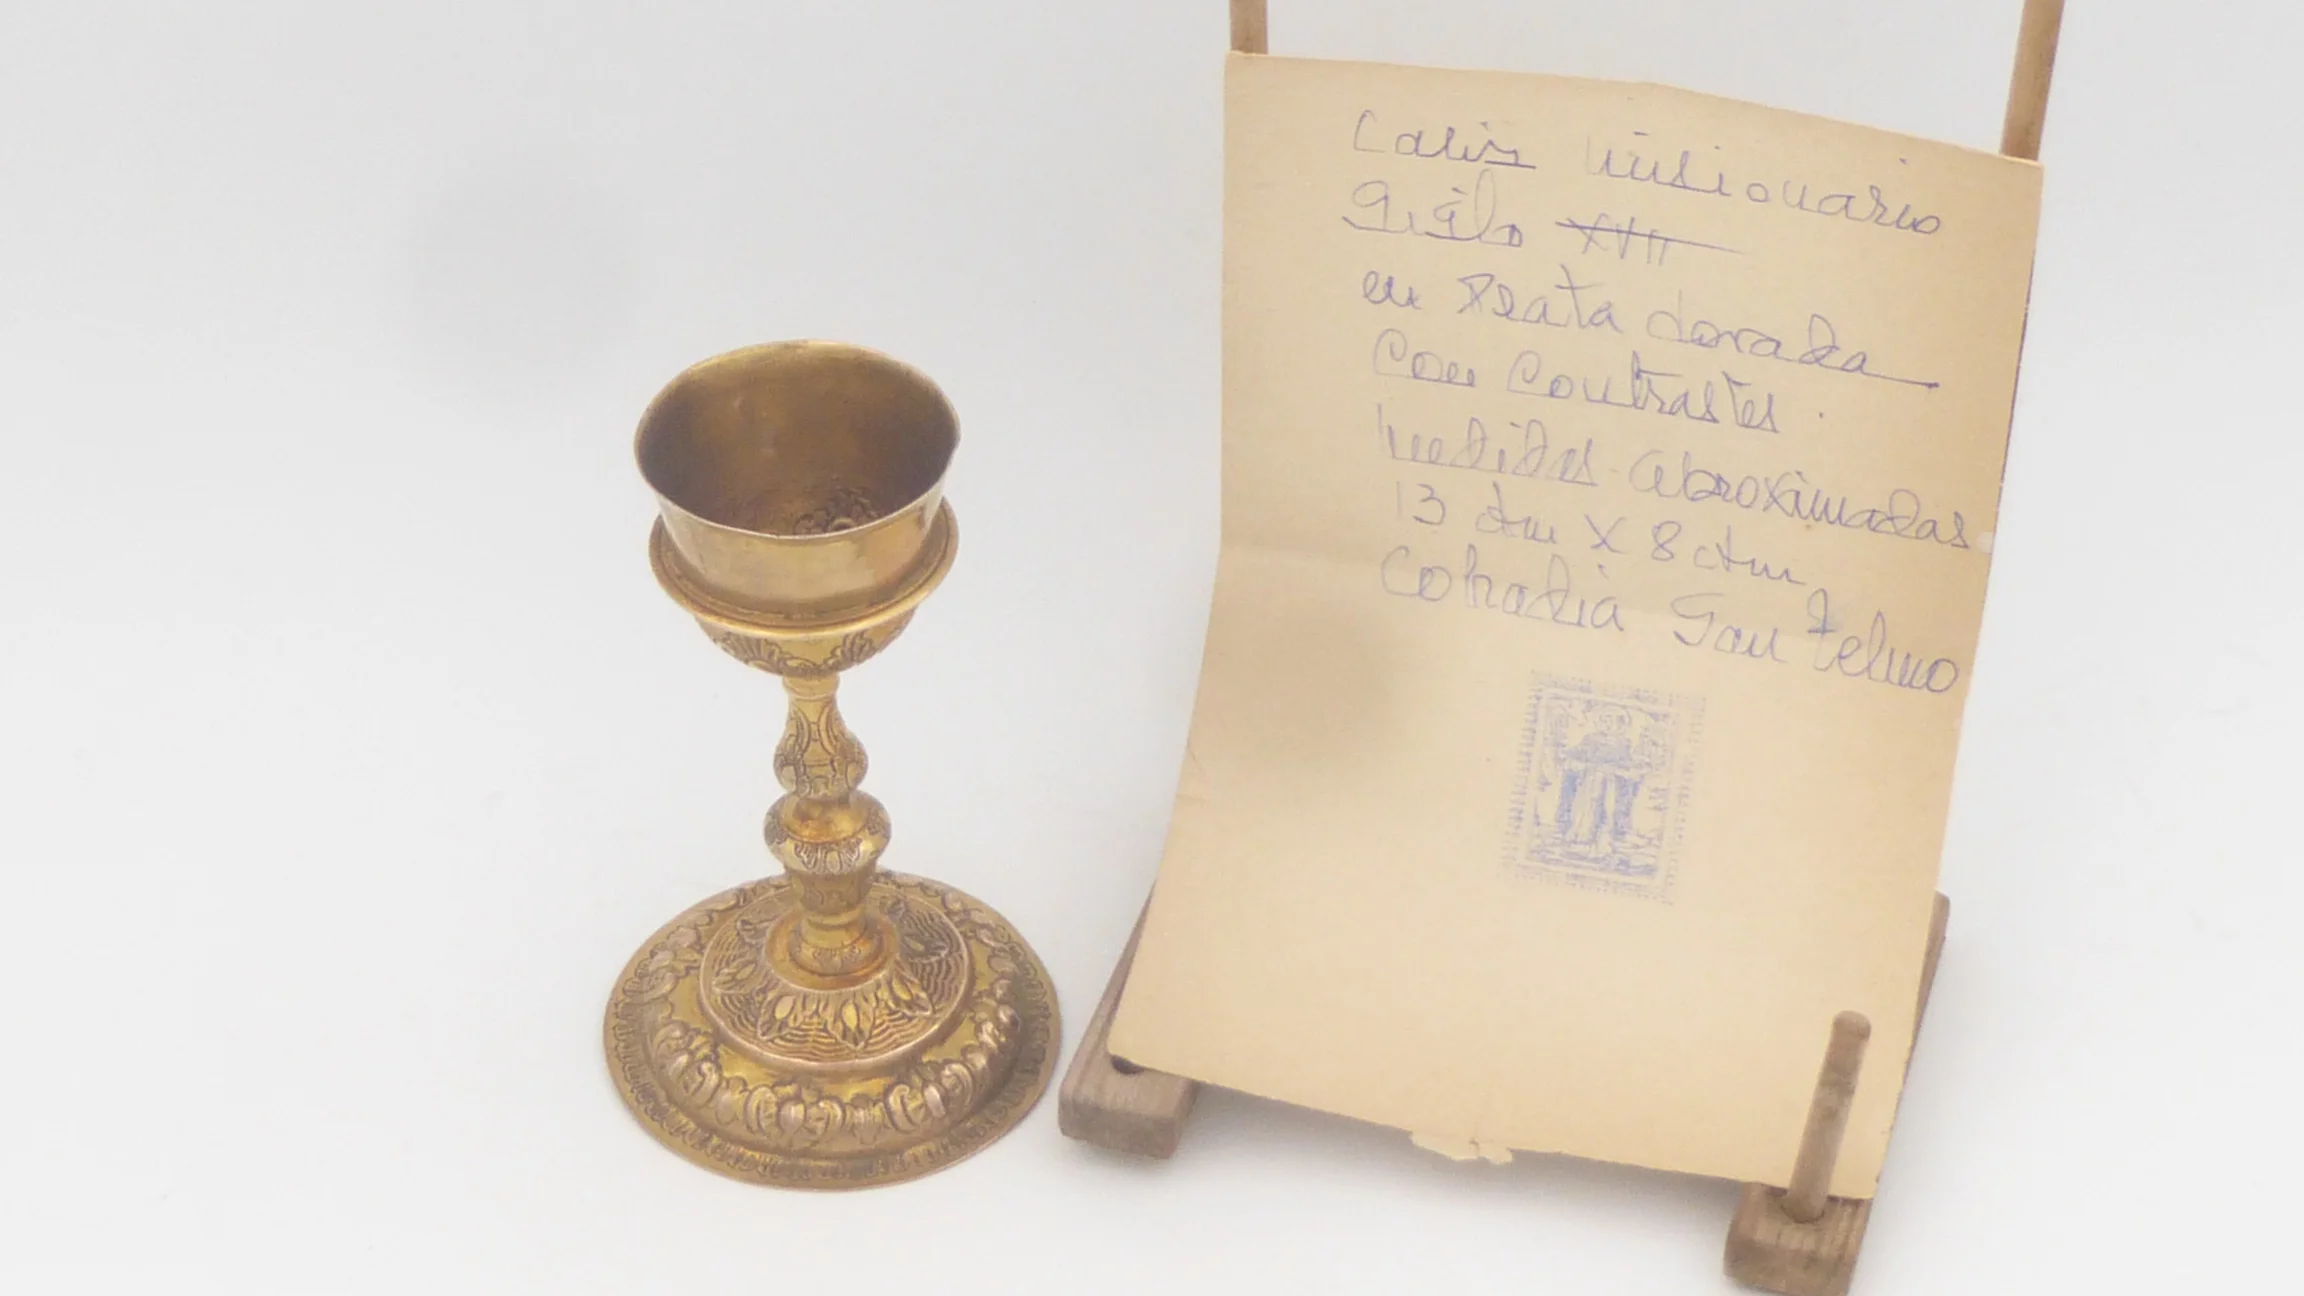 Calis Misionario
Siglo XVII
en Plata dorada
Con Contrastes.
Medidas aproximadas
13 ctm X 8 ctm
Cofradia San Telmo